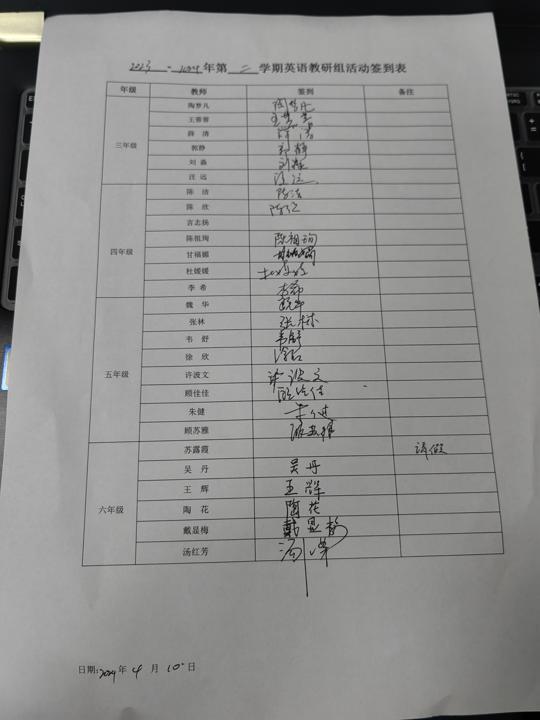 2023 - 2024 年第 二 学期英语教研组活动签到表
年级 教师 签到 备注
三年级
陶梦凡 陶梦凡
王蓉蓉 王蓉蓉
薛 清 薛 清
郭静 郭静
刘 淼 刘淼
汪 远 汪远
四年级
陈 洁 陈洁
陈 欣 陈欣
言志扬
陈祖珣 陈祖珣
甘福媚
杜媛媛 杜媛媛
李 希 李希
五年级
魏 华 魏华
张林 张林
韦 舒 韦舒
徐 欣 徐欣
许波文 许波文
顾佳佳 顾佳佳
朱健 朱健
顾苏雅 顾苏雅
六年级
苏露霞 请假
吴 丹 吴丹
王 辉 王辉
陶 花 陶花
戴显梅 戴显梅
汤红芳
日期: 2024 年 4 月 10 日